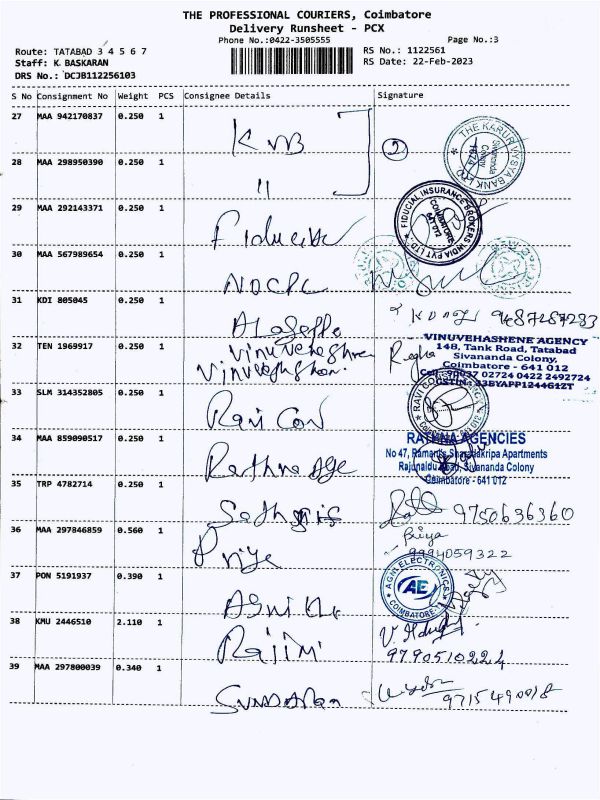 THE PROFESSIONAL COURIERS, Coimbatore
Delivery Runsheet - PCX
Phone No.:0422-3505555
Page No.:3
Route: TATABAD 3 4 5 6 7
RS No.: 1122561
Staff: K BASKARAN
RS Date: 22-Feb-2023
DRS No.: DCJB112256103
S No Consignment No Weight PCS Consignee Details Signature
27 MAA 942170837 0.250 1 KVB 2
THE KARUR VYSYA BANK LTD. 1674 Sivananda Colony
28 MAA 298950390 0.250 1 "
FIDUCIAL INSURANCE BROKERS INDIA PVT LTD COIMBATORE 641 012
29 MAA 292143371 0.250 1
30 MAA 567989654 0.250 1 NOCPC
31 KDI 805045 0.250 1 9487287283
32 TEN 1969917 0.250 1
VINUVEHASHENE AGENCY
148, Tank Road, Tatabad
Sivananda Colony,
Coimbatore - 641 012
02724 0422 2492724
33 SLM 314352805 0.250 1 Ravi Con
RAVI
34 MAA 859090517 0.250 1 Rathna Age
RATHNA AGENCIES
No 47, Apartments
Sivananda Colony
Coimbatore - 641 012
35 TRP 4782714 0.250 1 9750636360
36 MAA 297846859 0.560 1 Priya Priya
9994059322
37 PON 5191937 0.390 1
AGNI ELECTRONICS AE COIMBATORE
38 KMU 2446510 2.110 1 Rajini
9790510224
39 MAA 297800039 0.340 1 9715490018